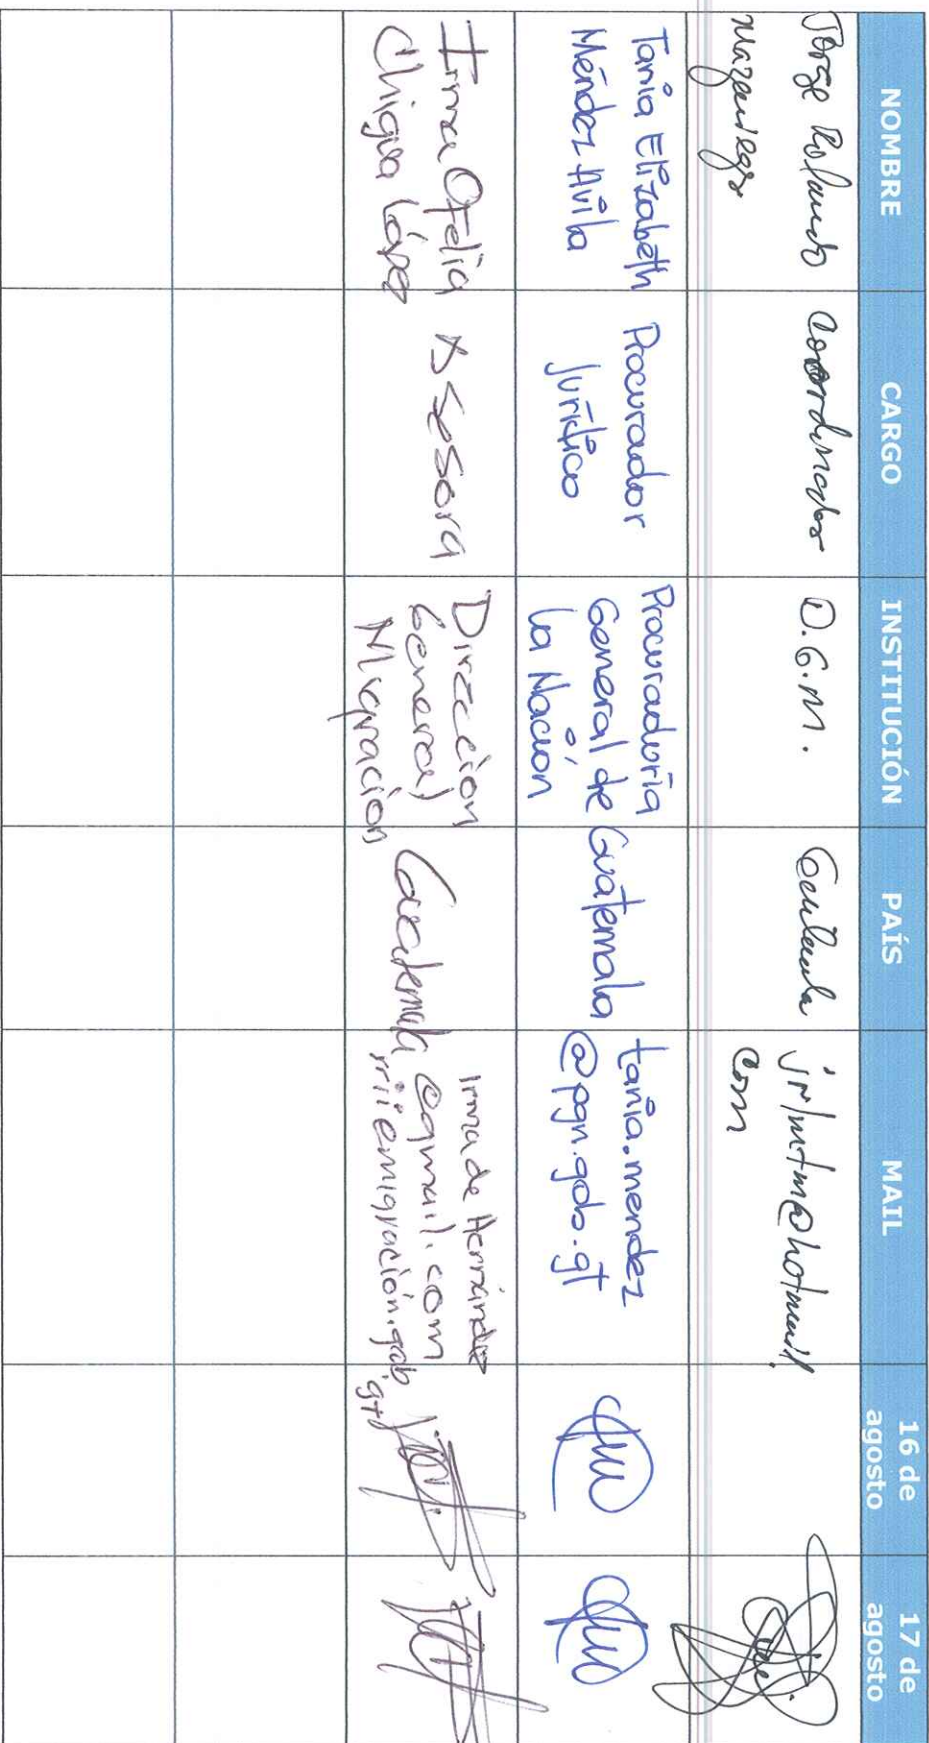 NOMBRE CARGO INSTITUCIÓN PAÍS MAIL 16 de agosto 17 de agosto
Jorge Rolando
Coordinador
D.G.M.
@hotmail.
com
Tania Elizabeth
Méndez Avila
Procurador
Jurídico
Procuraduría
General de
la Nación
Guatemala
tania.mendez
@pgn.gob.gt
Irma Ofelia
Chigua López
Asesora
Dirección
General
Migración
Guatemala
Irma de Hernández
@gmail.com